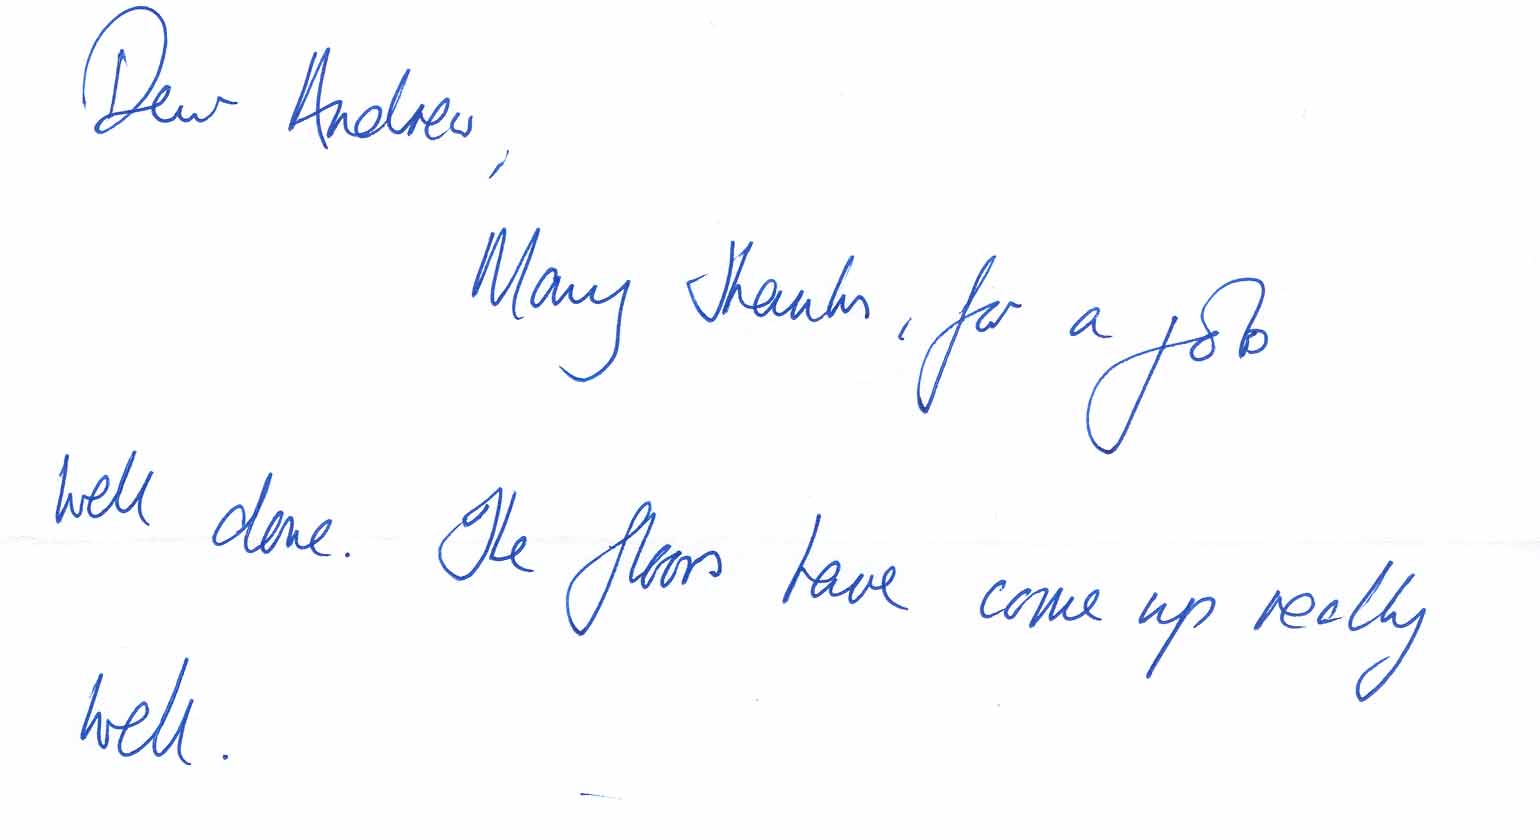 Dear Andrew,
Many thanks, for a job
well done. The floors have come up really
well.